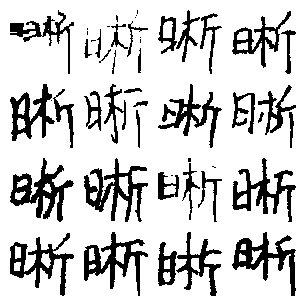 晰晰晰晰
晰晰晰晰
晰晰晰晰
晰晰晰晰